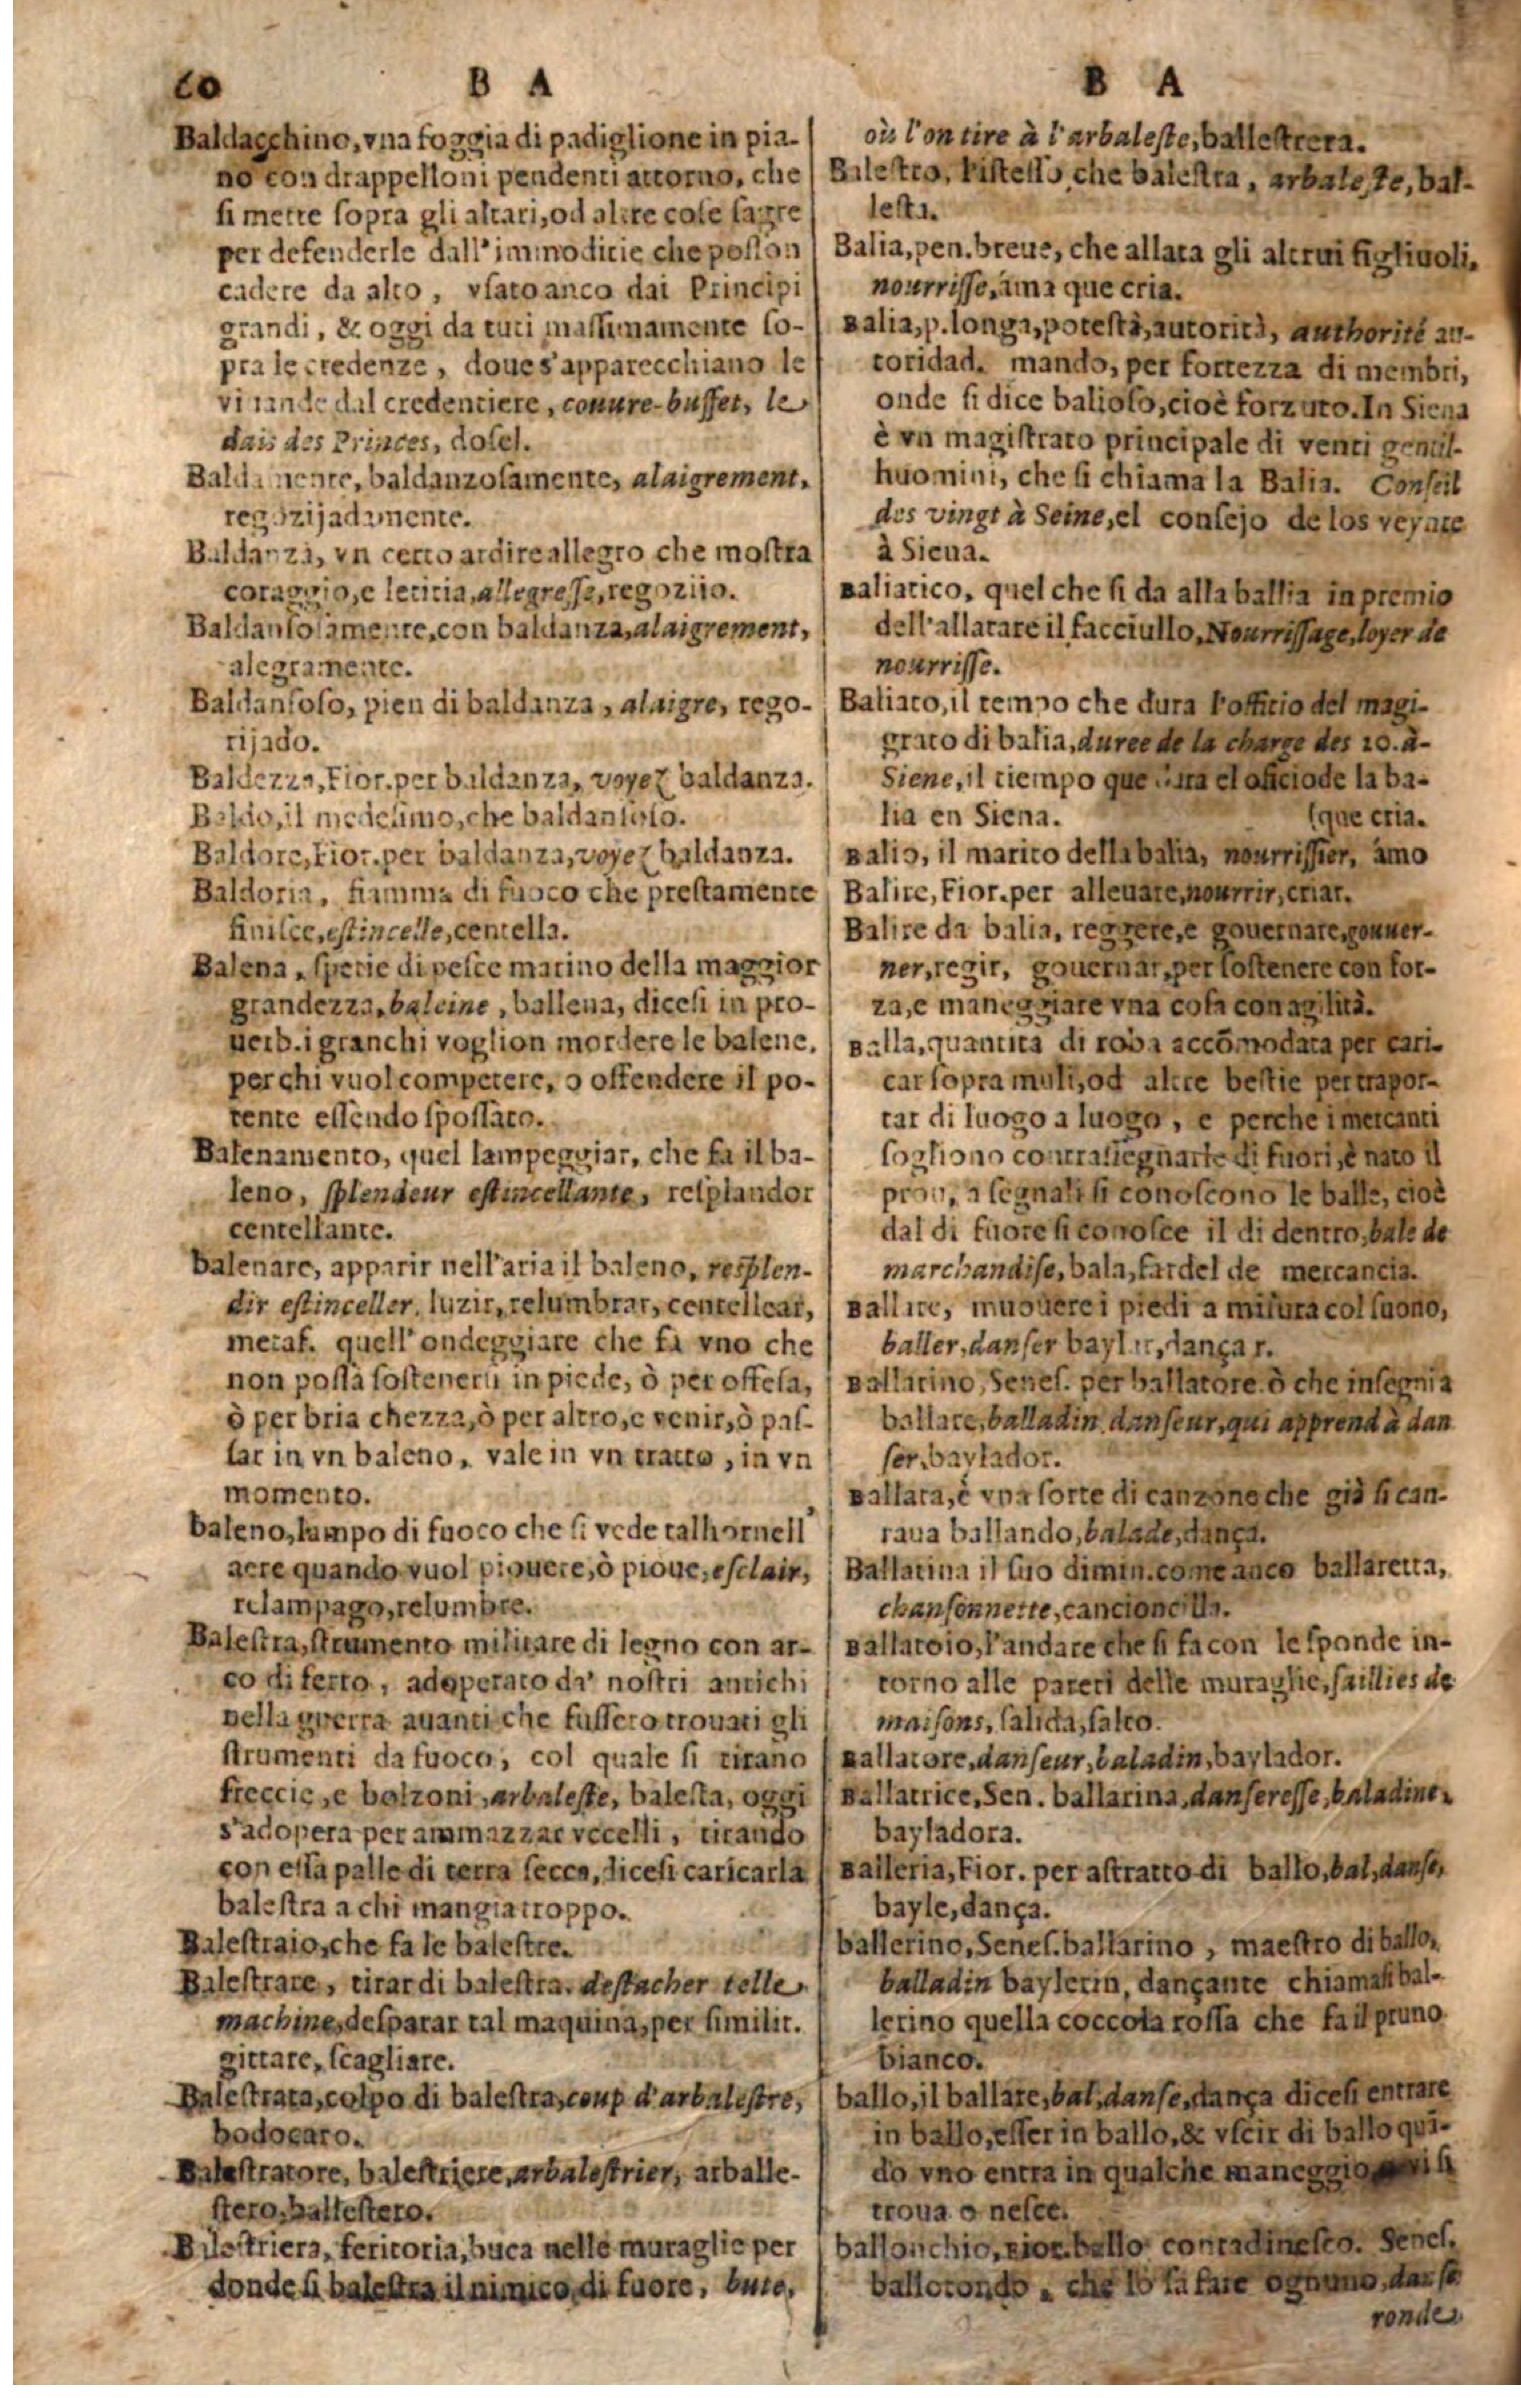 60 B A
Baldacchino, vna foggia di padiglione in pia-
no con drappelloni pendenti attorno, che
si mette sopra gli altari, od altre cose sagre
per defenderle dall'immodicie che posson
cadere da alto, vsato anco dai Principi
grandi, & oggi da tuti massimamente so-
pra le credenze, doue s'apparecchiano le
viuande dal credentiere, couure-buffet, le
dais des Princes, dosel.
Baldamente, baldanzosamente, alaigrement,
regozijadamente.
Baldanza, vn certo ardire allegro che mostra
coraggio, e letitia, allegresse, regoziio.
Baldansosamente, con baldanza, alaigrement,
alegramente.
Baldansoso, pien di baldanza, alaigre, rego-
rijado.
Baldezza, Fior. per baldanza, voyez baldanza.
Baldo, il medesimo, che baldansoso.
Baldore, Fior. per baldanza, voyez baldanza.
Baldoria, fiamma di fuoco che prestamente
finisce, estincelle, centella.
Balena, spetie di pesce marino della maggior
grandezza, baleine, ballena, dicesi in pro-
uerb. i granchi voglion mordere le balene,
per chi vuol competere, o offendere il po-
tente essendo spossato.
Balenamento, quel lampeggiar, che fa il ba-
leno, splendeur estincellante, resplandor
centellante.
balenare, apparir nell'aria il baleno, resplen-
dir estinceller, luzir, relumbrar, centellear,
metaf. quell'ondeggiare che fa vno che
non possa sostenersi in piede, ò per offesa,
ò per bria chezza, ò per altro, e venir, ò pas-
sar in vn baleno, vale in vn tratto, in vn
momento.
baleno, lampo di fuoco che si vede talhor nell'
aere quando vuol piouere, ò pioue, esclair,
relampago, relumbre.
Balestra, strumento militare di legno con ar-
co di ferro, adoperato da' nostri antichi
nella guerra auanti che fussero trouati gli
strumenti da fuoco, col quale si tirano
freccie, e bolzoni, arbaleste, balesta, oggi
s'adopera per ammazzar vccelli, tirando
con essa palle di terra secca, dicesi caricar la
balestra a chi mangia troppo.
Balestraio, che fa le balestre.
Balestrare, tirar di balestra. destacher telle
machine, desparar tal maquina, per similit.
gittare, scagliare.
Balestrata, colpo di balestra, coup d'arbalestre,
bodocaro.
Balestratore, balestriere, arbalestrier, arballe-
stero, ballestero.
Balestriera, feritoria, buca nelle muraglie per
donde si balestra il nimico, di fuore, bute,
B A
où l'on tire à l'arbaleste, ballestrera.
Balestro, l'istesso che balestra, arbaleste, bal-
lesta.
Balia, pen. breue, che allata gli altrui figliuoli,
nourrisse, ama que cria.
Balia, p. longa, potestà, autorità, authorité au-
toridad. mando, per fortezza di membri,
onde si dice balioso, cioè forzuto. In Siena
è vn magistrato principale di venti gentil-
huomini, che si chiama la Balia. Conseil
des vingt à Seine, el consejo de los veynte
à Siena.
Baliatico, quel che si da alla ballia in premio
dell'allatare il facciullo, Nourrissage, loyer de
nourrisse.
Baliato, il tempo che dura l'offitio del magi-
grato di balia, duree de la charge des 20. à-
Siene, il tiempo que dura el oficio de la ba-
lia en Siena. (que cria.
Balio, il marito della balia, nourrissier, amo
Balire, Fior. per alleuare, nourrir, criar.
Balire da balia, reggere, e gouernare, gouuer-
ner, regir, gouernar, per sostenere con for-
za, e maneggiare vna cosa con agilità.
Balla, quantità di roba accõmodata per cari-
car sopra muli, od altre bestie per trapor-
tar di luogo a luogo, e perche i mercanti
sogliono contrasegnarle di fuori, è nato il
prou, a segnali si conoscono le balle, cioè
dal di fuore si conosce il di dentro, bale de
marchandise, bala, fardel de mercancia.
Ballare, muouere i piedi a misura col suono,
baller, danser baylar, dança r.
Ballatino, Senes. per ballatore. ò che insegnia
ballare, balladin, danseur, qui apprend à dan
ser, baylador.
Ballata, è vna sorte di canzone che già si can-
taua ballando, balade, dança.
Ballatina il suo dimin. come anco ballaretta,
chansonnette, cancioncilla.
Ballatoio, l'andare che si fa con le sponde in-
torno alle pareti delle muraglie, saillies de
maisons, salida, salto.
Ballatore, danseur, baladin, baylador.
Ballatrice, Sen. ballarina, danseresse, baladine,
bayladora.
Balleria, Fior. per astratto di ballo, bal, danse,
bayle, dança.
ballerino, Senes. ballarino, maestro di ballo,
balladin baylerin, dançante chiamasi bal-
lerino quella coccola rossa che fa il pruno
bianco.
ballo, il ballare, bal, danse, dança dicesi entrare
in ballo, esser in ballo, & vscir di ballo quã-
do vno entra in qualche maneggio vi si
troua o nesce.
ballonchio, Fior. ballo contadinesco. Senes.
ballotondo, che lo fa fare ognuno, danse
ronde